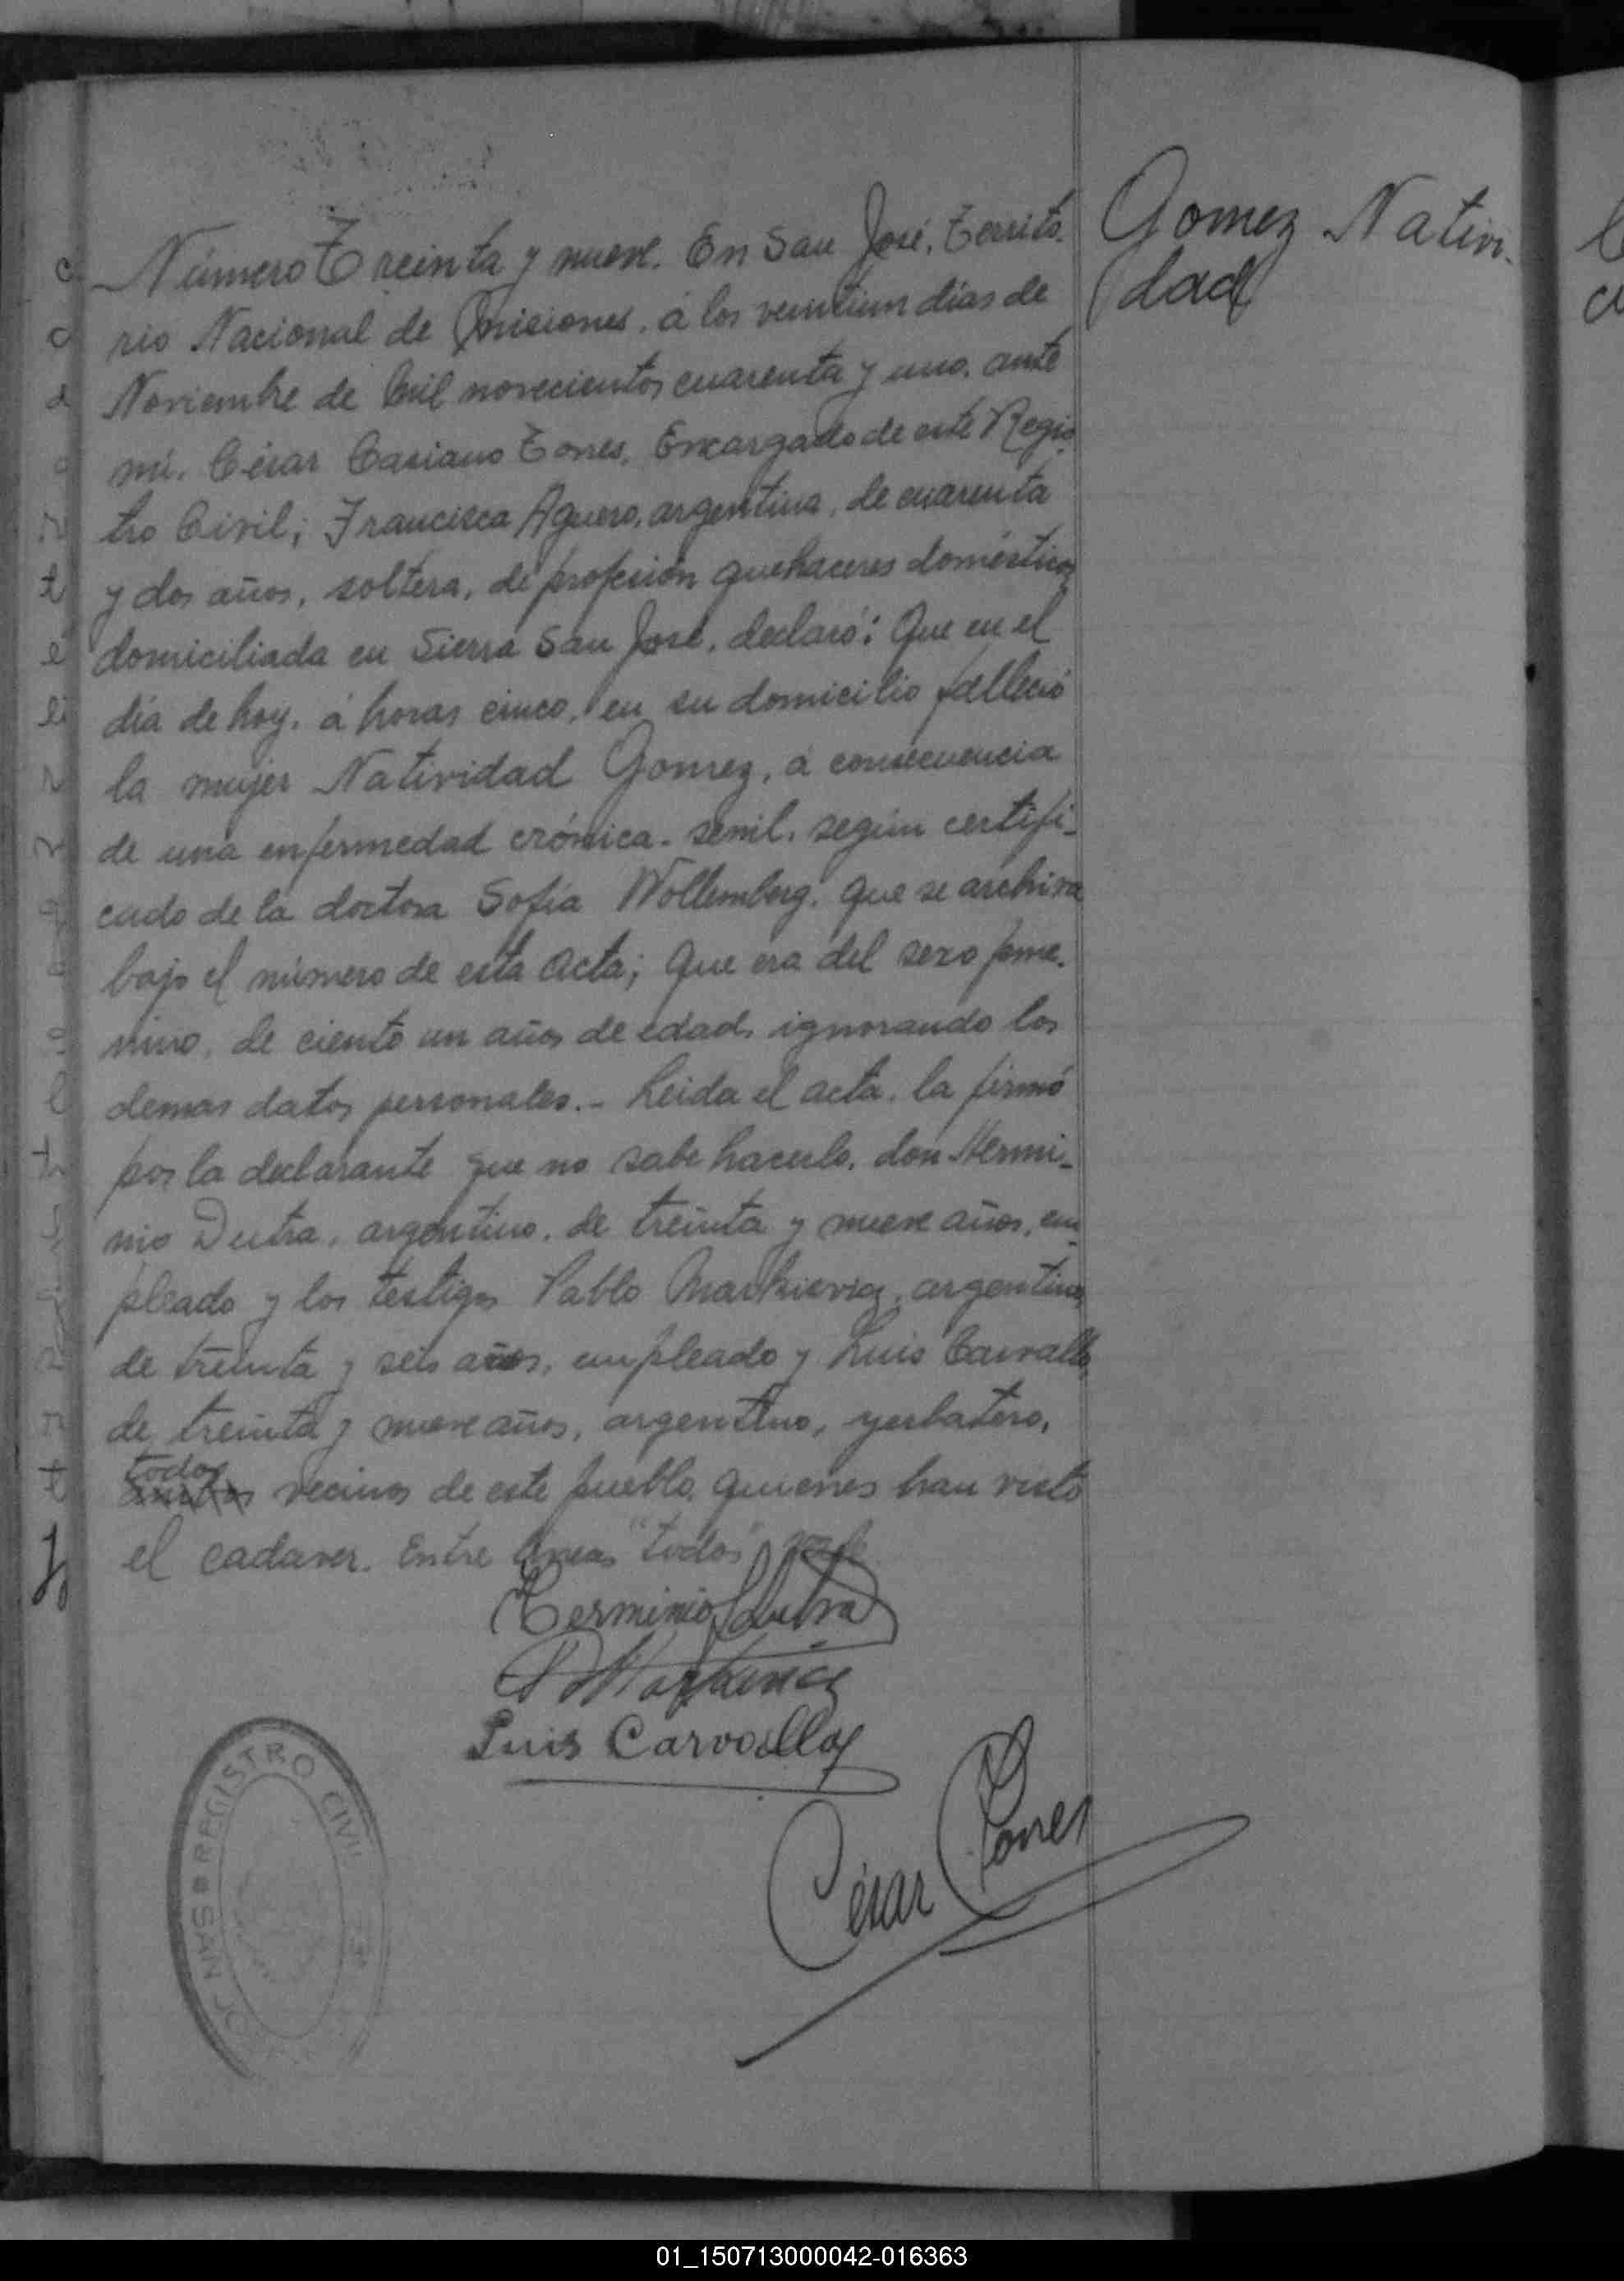 Gomez Nativi-
dad
Número Treinta y nueve. En San José, Territo-
rio Nacional de Misiones, á los veintiun días de
Noviembre de mil novecientos cuarenta y uno, ante
mí, César Casiano Torres, Encargado de este Regis-
tro Civil; Francisca Aguero, argentina, de cuarenta
y dos años, soltera, de profesión quehaceres domésticos
domiciliada en Sierra San José, declaró: Que en el
día de hoy, á horas cinco, en su domicilio falleció
la mujer Natividad Gomez, á consecuencia
de una enfermedad crónica - senil, según certifi-
cado de la doctora Sofía Wollemberg, que se archiva
bajo el número de esta acta; Que era del sexo feme-
nino, de ciento un años de edad, ignorando los
demas datos personales.- Leida el acta, la firmó
por la declarante que no sabe hacerlo, don Hermi-
nio Dutra, argentino, de treinta y nueve años, em-
pleado y los testigos Pablo Markievicz, argentino,
de treinta y seis años, empleado y Luis Carvallo,
de treinta y nueve años, argentino, yerbatero,
todos
ambos vecinos de este pueblo, quienes han visto
el cadaver. Entre líneas "todos" vale
Herminio Dutra
P Markievicz
Luis Carvallo
César Torres
REGISTRO CIVIL
SAN JO
01_150713000042-016363